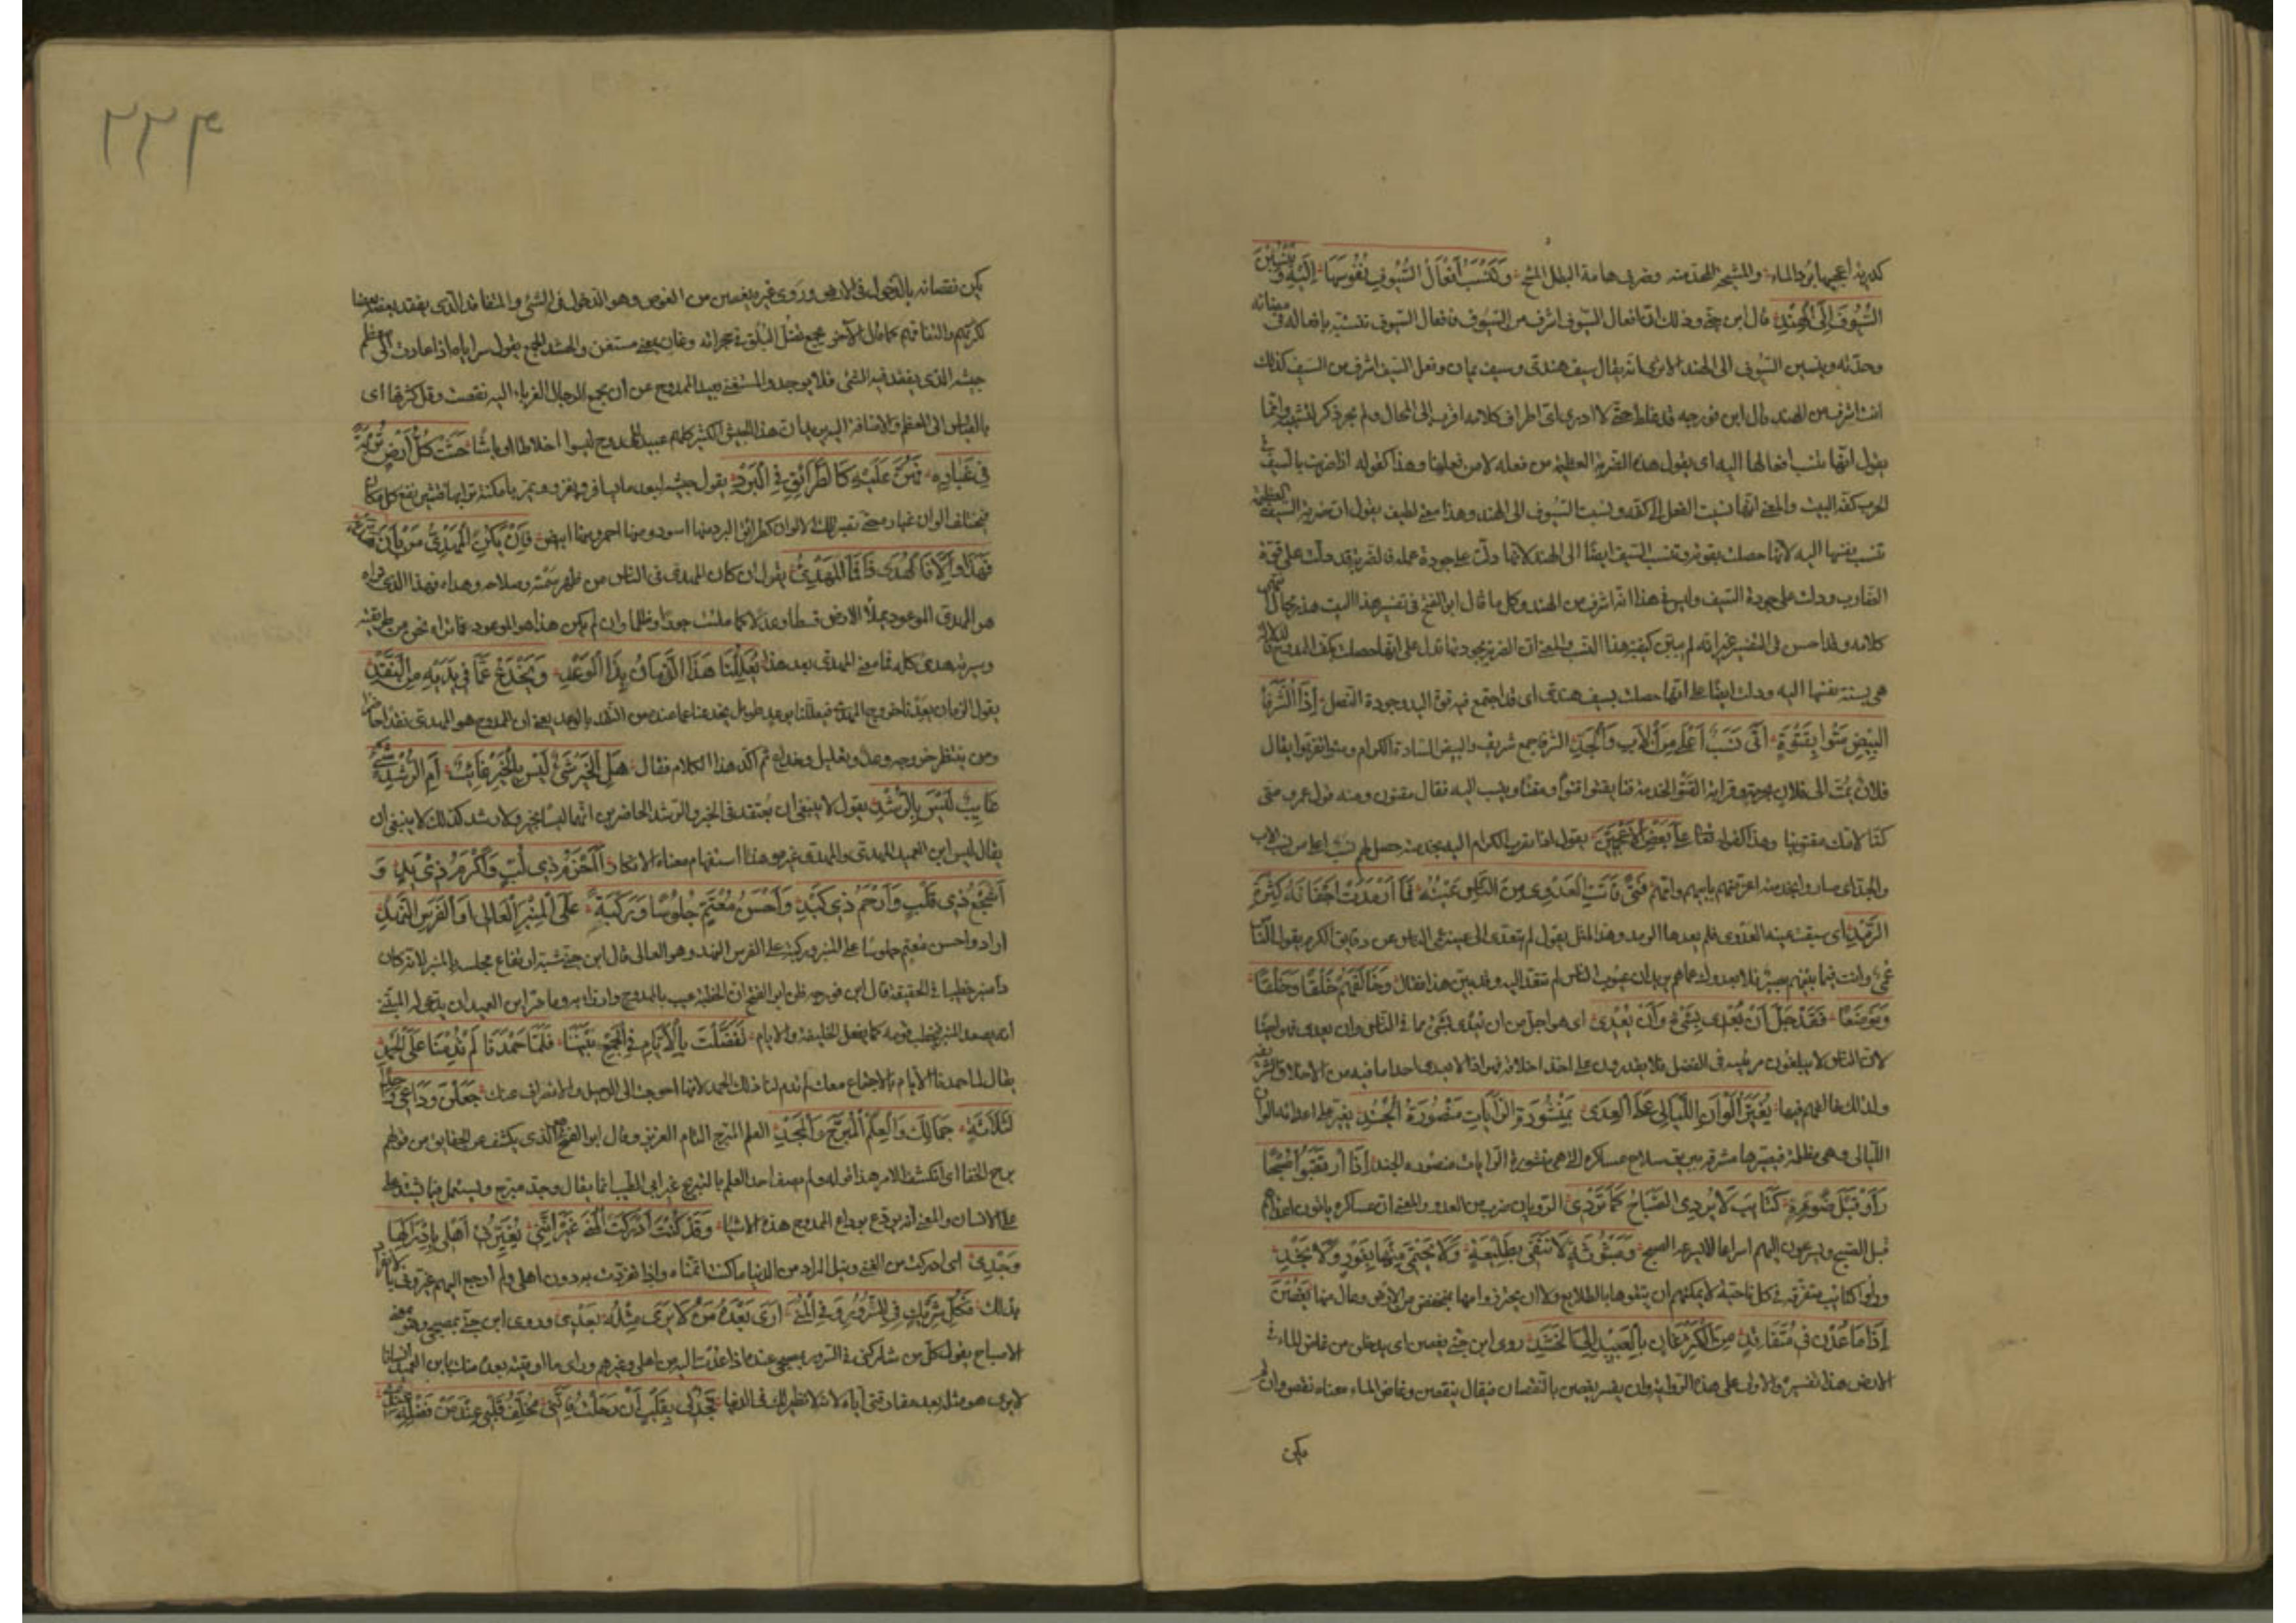 كدرية اعجبها برد الماء والمشيح المجد منه وضرب هامة البطل المشيح وَتَنْسُبُ أَفْعَالُ السُّيُوفِ نُفُوسَهَا إِلَيْهِ وَيَنْسِبْنَ
السُّيُوفَ إِلَى الْهِنْدِ قال ابن جنى وذلك ان افعال السيوف اشرف من السيوف فافعال السيوف تتشبه بافعاله في مضائه
وحدته وينسبن السيوف الى الهند الا ترى انه يقال سيف هندى وسيف يمان وفعل السيف اشرف من السيف كذلك
انت اشرف من الهند قال ابن فورجه قد غلط حتى لا ادرى اى اطراف كلامه اقرب الى المحال ولم يجر ذكر لتشبه وانما
يقول انها تنسب افعالها اليه اى يقول هذه الضربة العظيمة من فعله لا من فعلنا وهذا كقوله اذا ضربت بالسيف في
الحرب كفه البيت والمعنى انها نسبت الفعل الى كفه ونسبت السيوف الى الهند وهذا معنى لطيف يقول ان ضربة السيف العظيمة
تنسب نفسها اليه لانها حصلت بقوته وتنسب السيف ايضا الى الهند لانها دلت على جودة عمله فالضربة قد دلت على قوة
الضارب ودلت على جودة السيف وليس في هذا انه اشرف من الهند وكل ما قال ابو الفتح في تفسير هذا البيت هذيان
كلامه وقد احسن في التفسير غير انه لم يبين كيفية هذا النسب والمعنى ان الضربة بجودتها تدل على انها حصلت بكف الممدوح
هى نسبة نفسها اليه ودلت ايضا على انها حصلت بسيف هندى اى قد اجتمع فيه قوة اليد وجودة النصل إِذَا الشُّرَفَاءُ
الْبِيضُ مَتُّوا بِقَتْوِهِ أَتَى نَسَبٌ أَعْلَى مِنَ الْأَبِ وَالْجَدِّ الشرفاء جمع شريف والبيض السادة الكرام ومتوا تقربوا يقال
فلان يمت الى فلان بحرمة وقرابة القتو الخدمة قتا يقتو قتوا ومقتا وينسب اليه فقال مقتوى ومنه قول عمرو متى
كنا لامك مقتوينا وهذا كقوله تعالى على بعض الاعجمين يقول اذا تقرب الكرام اليه بخدمته حصل لهم نسب اعلى من نسب الاب
والجد اى صاروا بخدمته اعز منهم بابيهم وامهم فَتًى فَاتَتِ الْعَدْوَى مِنَ النَّاسِ عَيْنُهُ فَمَا أَرْمَدَتْ أَجْفَانَهُ كَثْرَةُ
الرُّمْدِ اى سبقت عينه العدوى فلم يعدها الرمد وهذا المثل يقول لم يتعدى الى عينه عمى الناس عن دقايق الكرم يقول الناس
عمى وانت فيما بينهم بصير وَخَالَفَهُمْ خَلْقًا وَخُلْقًا
وَمَوْضِعًا فَقَدْ جَلَّ أَنْ يُعْدَى بِشَيْءٍ وَأَنْ يُعْدِي اى هو اجل من ان يعدى بشئ مما في الناس وان يعدى هو احدا
لان الناس لا يبلغون مرتبته في الفضل فلا يقدرون على اخذ اخلاقه فهو اذا لا يعدى احدا ما فيه من الاخلاق الشريفة
ولذلك خالفهم فيها يُغَيِّرُ أَلْوَانَ اللَّيَالِي عَلَى الْعِدَى بِمَنْشُورَةِ الرَّايَاتِ مَنْصُورَةِ الْجُنْدِ يغير على اعدائه الوان
الليالى وهى مظلمة فيصيرها مشرقة ببريق سلاح عساكره التى هى منشورة الرايات منصورة الجند إِذَا ارْتَقَبُوا صُبْحًا
رَأَوْا قَبْلَ ضَوْئِهِ كَتَائِبَ لَا يَرْدِي الصَّبَاحُ كَمَا تَرْدِي الرديان ضرب من العدو والمعنى ان عساكره ياتون اعداءهم
قبل الصبح ويسرعون اليهم اسراعا لا يسرعه الصبح وَمَبْثُوثَةً لَا تُتَّقَى بِطَلِيعَةٍ وَلَا يُحْتَمَى مِنْهَا بِغَوْرٍ وَلَا نَجْدِ
وراوا كتائب متفرقة في كل ناحية لا يمكنهم ان يتقوها بالطلايع ولا ان يحترزوا منها بمنخفض من الارض وعال منها يَغِضْنَ
إِذَا مَا عُدْنَ فِي مُتَفَاقِدٍ مِنَ الْكُثْرِ غَانٍ بِالْعَبِيدِ عَنِ الْحَشْدِ روى ابن جنى يغضن اى يدخلن من غاض الماء في
الارض هذا تفسيره والاولى على هذه الرواية ان يفسر يغضن بالنقصان فيقال ينقصن وغاض الماء معناه نقص وان لم
يكن
٢٢٤
يكن نقصانه بالدخول في الارض وروى غيره يغصن من الغوص وهو الدخول في الشئ والمتفاقد الذى يفقد بعضه بعضا
لكثرتهم والتفاقد كما قال الآخر بجمع تضل البلق في حجراته وغان بمعنى مستغن والحشد الجمع يقول سراياه اذا عادت الى معظم
جيشه الذى يفقد فيه الشئ فلا يوجد والمستغنى بعبيد الممدوح عن ان يجمع الرجال الغرباء اليه نقصت وقل كثرتها اى
بالقياس الى العظم والاضافة اليه يريد ان هذا الجيش الكثير كلهم عبيد للممدوح ليسوا اخلاطا اوباشا حَثَتْ كُلُّ أَرْضٍ تُرْبَةً
فِي غُبَارِهِ فَهُنَّ عَلَيْهِ كَالطَّرَائِقِ فِي الْبُرْدِ يقول جيشه لبعد ما يسافر ويغزو يمر بامكنة ترابها
فيختلف الوان غباره حتى تصير تلك الالوان كطرائق البرد منها اسود ومنها احمر ومنها ابيض فَإِنْ يَكُنِ الْمَهْدِيُّ مَنْ بَانَ هَدْيُهُ
فَهَذَا وَإِلَّا فَالْهُدَى ذَا فَمَا الْمَهْدِي يقول ان كان المهدى في الناس من ظهر سمته وصلاحه وهداه فهذا الذى نراه
هو المهدى الموعود يملأ الارض قسطا وعدلا كما ملئت جورا وظلما وان لم يكن هذا هو الموعود فما نراه نحن من طريقته
وسيرته هدى كله فما معنى المهدى بعد هذا يُعَلِّلُنَا هَذَا الزَّمَانُ بِذَا الْوَعْدِ وَيَخْدَعُ عَمَّا فِي يَدَيْهِ مِنَ النَّقْدِ
يقول الزمان يعدنا خروج المهدى فيعللنا بوعد طويل يخدعنا عما عنده من النقد بالوعد يعنى ان الممدوح هو المهدى نقدا حاضرا
ومن ينتظر خروجه وعد وتعليل وخداع ثم اكد هذا الكلام فقال هَلِ الْخَيْرُ شَيْءٌ لَيْسَ بِالْخَيْرِ غَائِبٌ أَمِ الرُّشْدُ شَيْءٌ
غَائِبٌ لَيْسَ بِالرُّشْدِ يقول لا ينبغى ان يعتقد في الخير والرشد الحاضرين انهما ليسا بخير ولا رشد كذلك لا ينبغى ان
يقال ليس ابن العميد المهدى والمهدى غيره وهذا استفهام معناه الانكار أَأَحْزَمَ ذِي لُبٍّ وَأَكْرَمَ ذِي يَدٍ وَ
أَشْجَعَ ذِي قَلْبٍ وَأَرْحَمَ ذِي كِبْدِ وَأَحْسَنَ مُعْتَمٍّ جُلُوسًا وَرِكْبَةً عَلَى الْمِنْبَرِ الْعَالِي أَوِ الْفَرَسِ النَّهْدِ
اراد واحسن معتم جلوسا على المنبر وركبة على الفرس النهد وهو العالى قال ابن جنى شبه ارتفاع مجلسه بالمنبر لا انه كان
ذا منبر خطيبا في الحقيقة قال ابن فورجه ظن ابو الفتح ان الخطبة عيب بالممدوح وازراء به وما ضر ابن العميد ان يدعى له المتنبى
انه يصعد المنبر فيخطب قومه كما يفعل الخليفة والامام تَفَضَّلَتِ الْأَيَّامُ بِالْجَمْعِ بَيْنَنَا فَلَمَّا حَمِدْنَا لَمْ تُدِمْنَا عَلَى الْحَمْدِ
يقال لما حمدنا الايام بالاجتماع معك لم تدم لنا ذلك الحمد لانها احوجت الى الرحيل والانصراف عنك جَعَلْنَ وَدَاعِي وَاحِدًا
لِثَلَاثَةٍ جَمَالِكَ وَالْعِلْمِ الْمُبَرِّحِ وَالْمَجْدِ العلم المبرح التام العزيز وقال ابو الفتح الذى يكشف عن الحقايق من قولهم
برح الخفا اى انكشف الامر هذا قوله ولم يصف احد العلم بالتبريح غير ابى الطيب انما يقال وجد مبرح ويستعمل فيما يشتد
على الانسان والمعنى انه يودع بوداع الممدوح هذه الاشياء وَقَدْ كُنْتُ أَدْرَكْتُ الْمُنَى غَيْرَ أَنَّنِي يُعَيِّرُنِي أَهْلِي بِإِدْرَاكِهَا
وَحْدِي اى ادركت من الغنى ونيل المراد من الدنيا ما كنت اتمناه واذا تفردت به دون اهلى ولم ارجع اليهم عيرونى
بذلك وَكُلُّ شَرِيكٍ فِي السُّرُورِ وَفِي الْمُنَى أَرَى بَعْدَهُ مَنْ لَا يَرَى مِثْلَهُ بَعْدِي وروى ابن جنى بمصبحى وهو بمعنى
الاصباح يقول كل من شاركنى في السرور بمصبحى عنده اذا عدت اليه من اهلى وغيرهم وراى ما اوتيته بعده منك يابن العميد انسانا
لا يرى هو مثله بعد مفارقتى اياه لانه لا نظير لك في الدنيا فَجُدْ لِي بِقَلْبٍ إِنْ رَحَلْتُ فَإِنَّنِي مُخَلِّفُ قَلْبِي عِنْدَ مَنْ فَضْلُهُ عِنْدِي